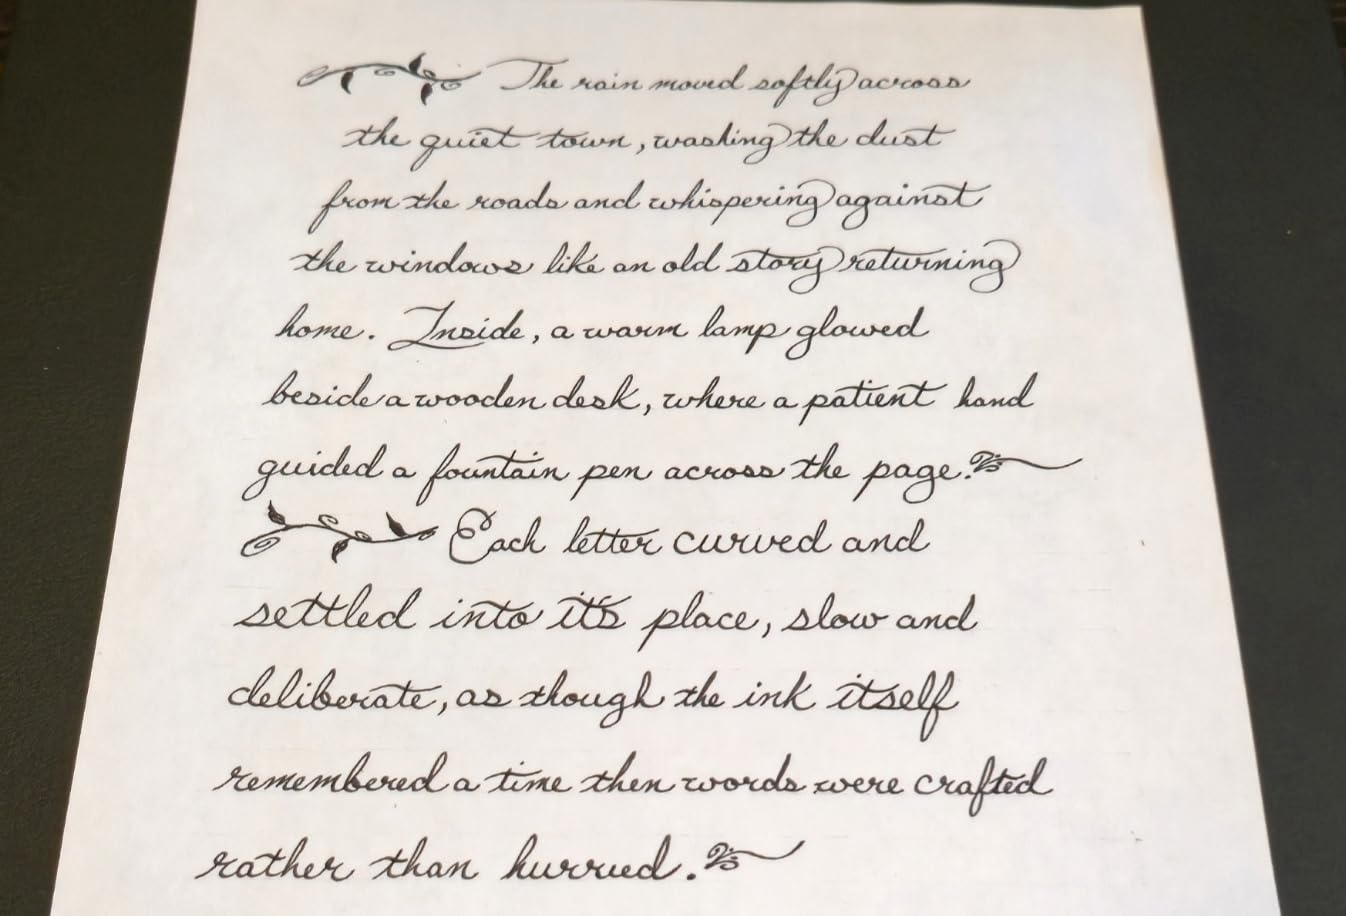 The rain moved softly across
the quiet town, washing the dust
from the roads and whispering against
the windows like an old story returning
home. Inside, a warm lamp glowed
beside a wooden desk, where a patient hand
guided a fountain pen across the page.
Each letter curved and
settled into it's place, slow and
deliberate, as though the ink itself
remembered a time then words were crafted
rather than hurried.